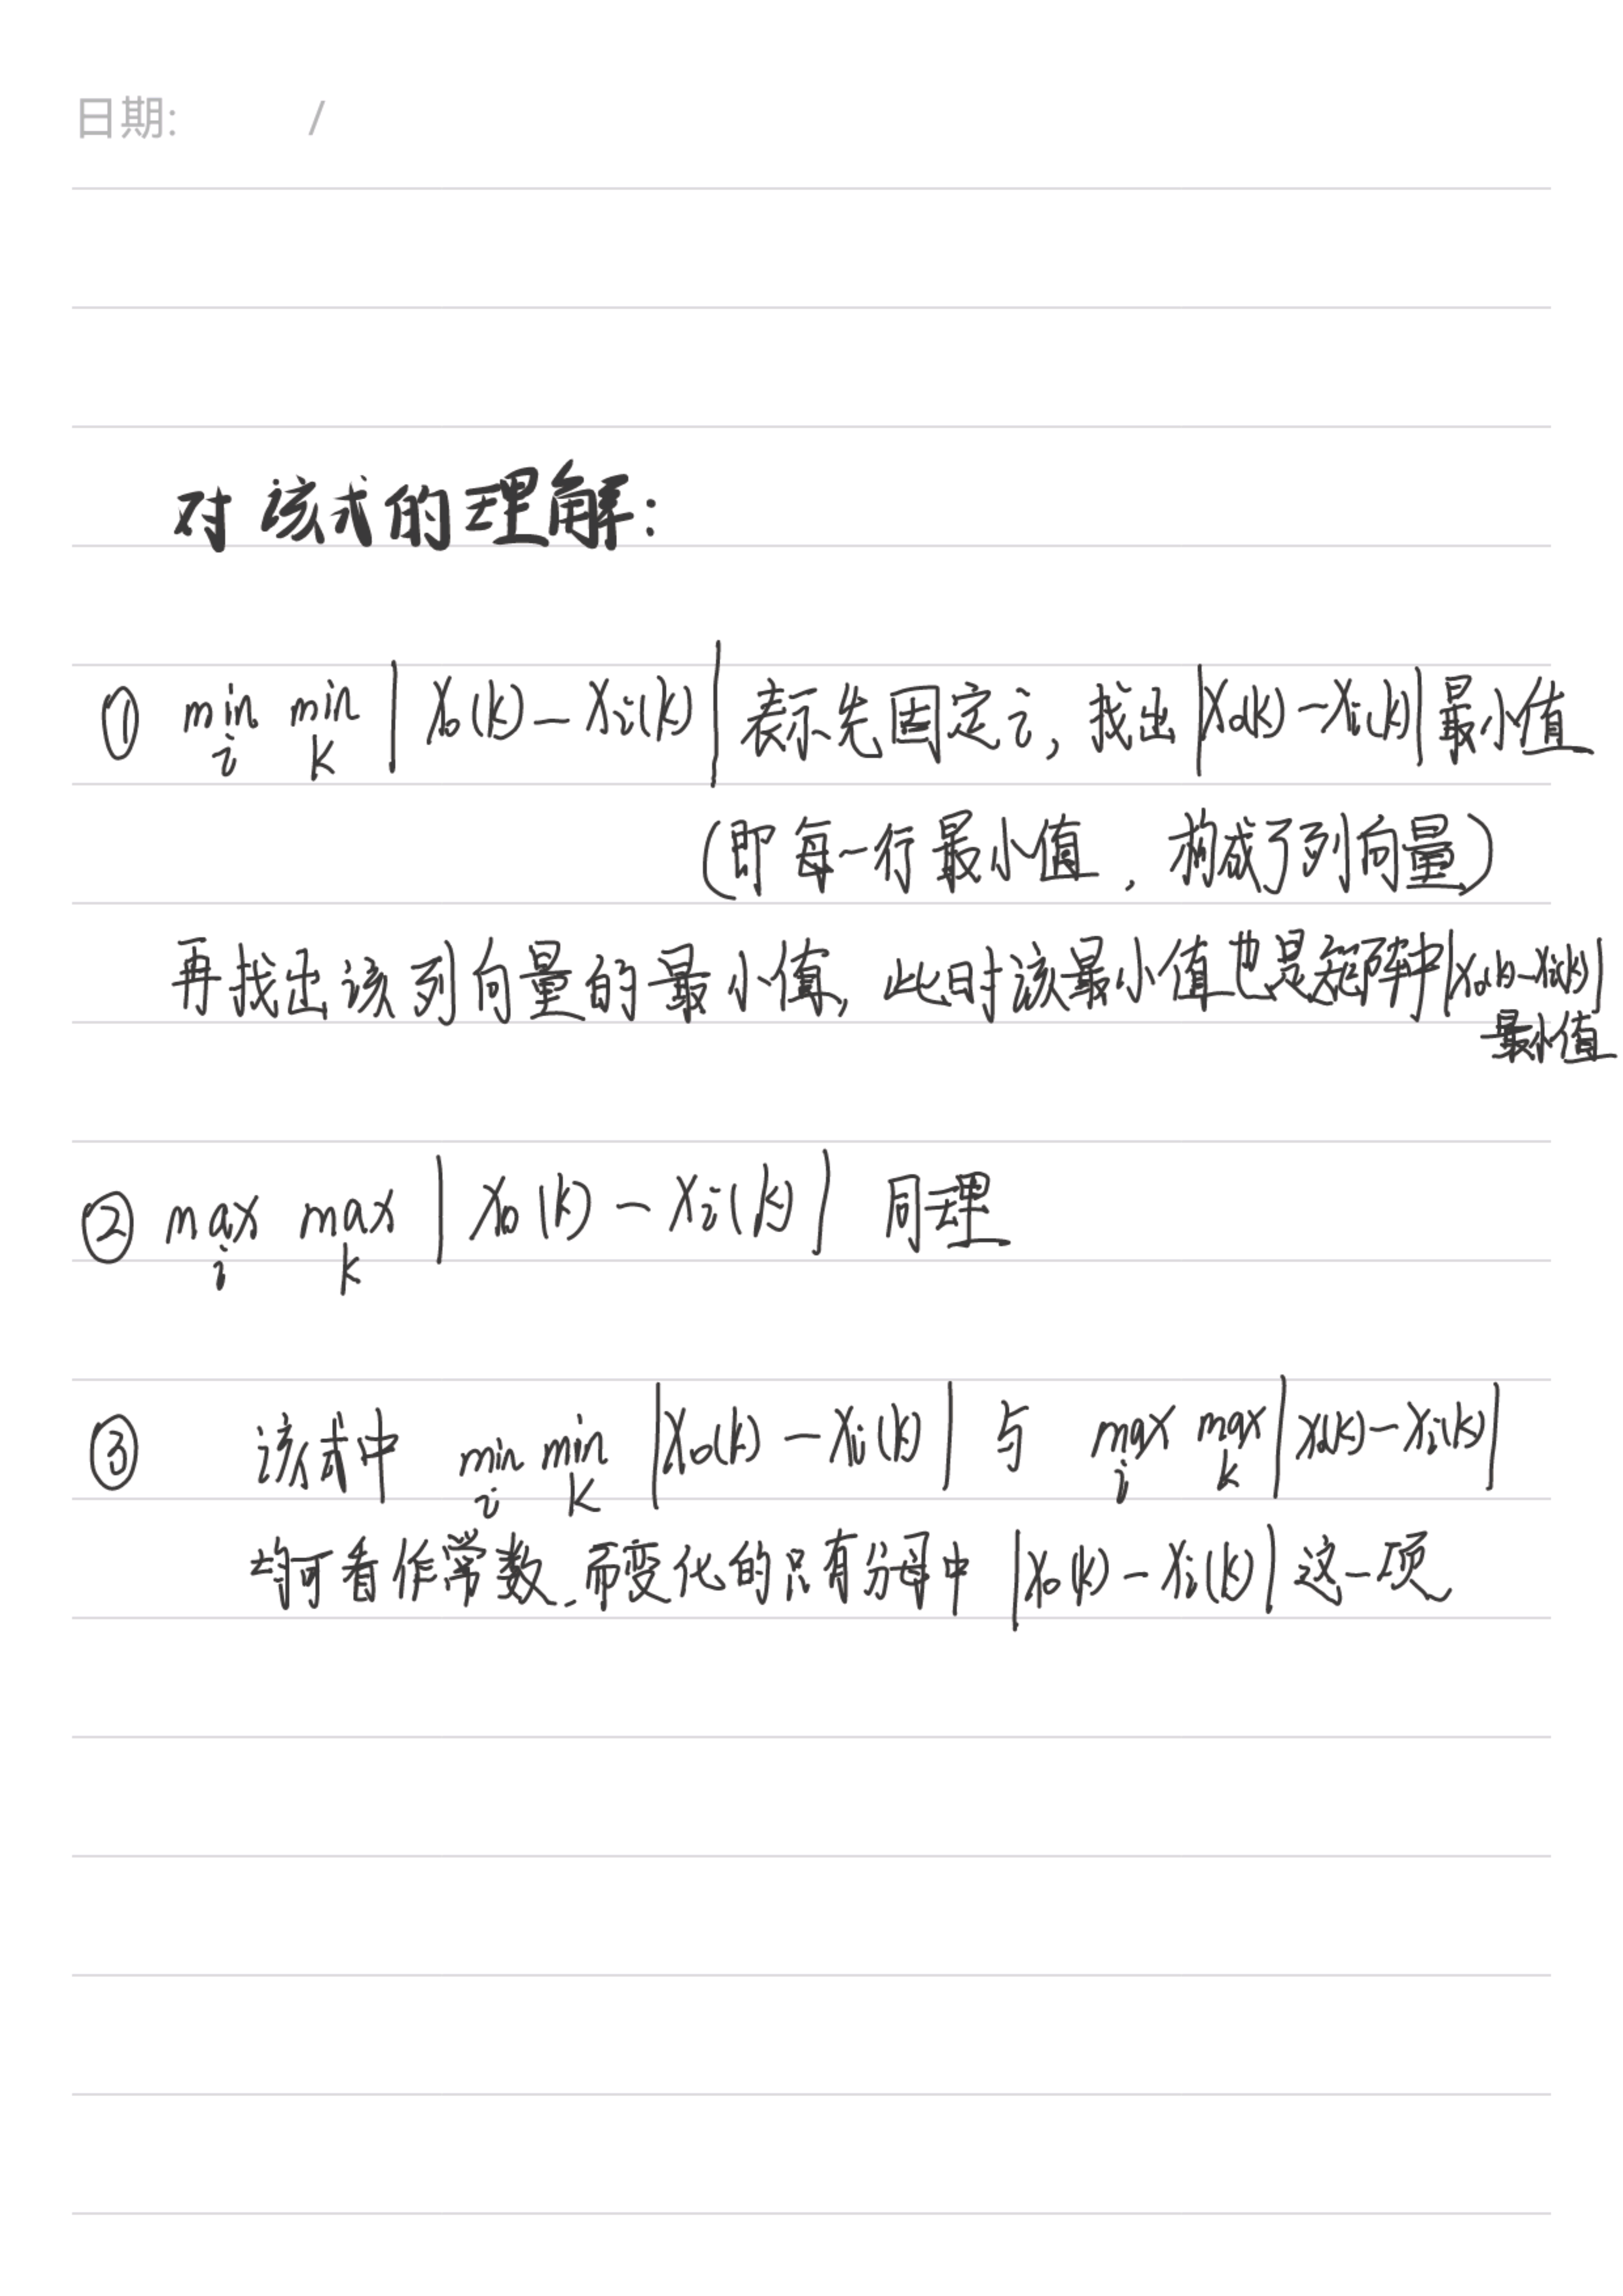 日期: /
对该式的理解:
① min min |X₀(k)-Xi(k)| 表示先固定i, 找出|X₀(k)-Xi(k)|最小值
i k
(即每一行最小值, 构成了列向量)
再找出该列向量的最小值, 此时该最小值也是矩阵中|X₀(k)-Xi(k)|
最小值
② max max |X₀(k)-Xi(k)| 同理
i k
③ 该式中 min min |X₀(k)-Xi(k)| 与 max max |X₀(k)-Xi(k)|
i k i k
均可看作常数, 而变化的只有分母中 |X₀(k)-Xi(k)| 这一项